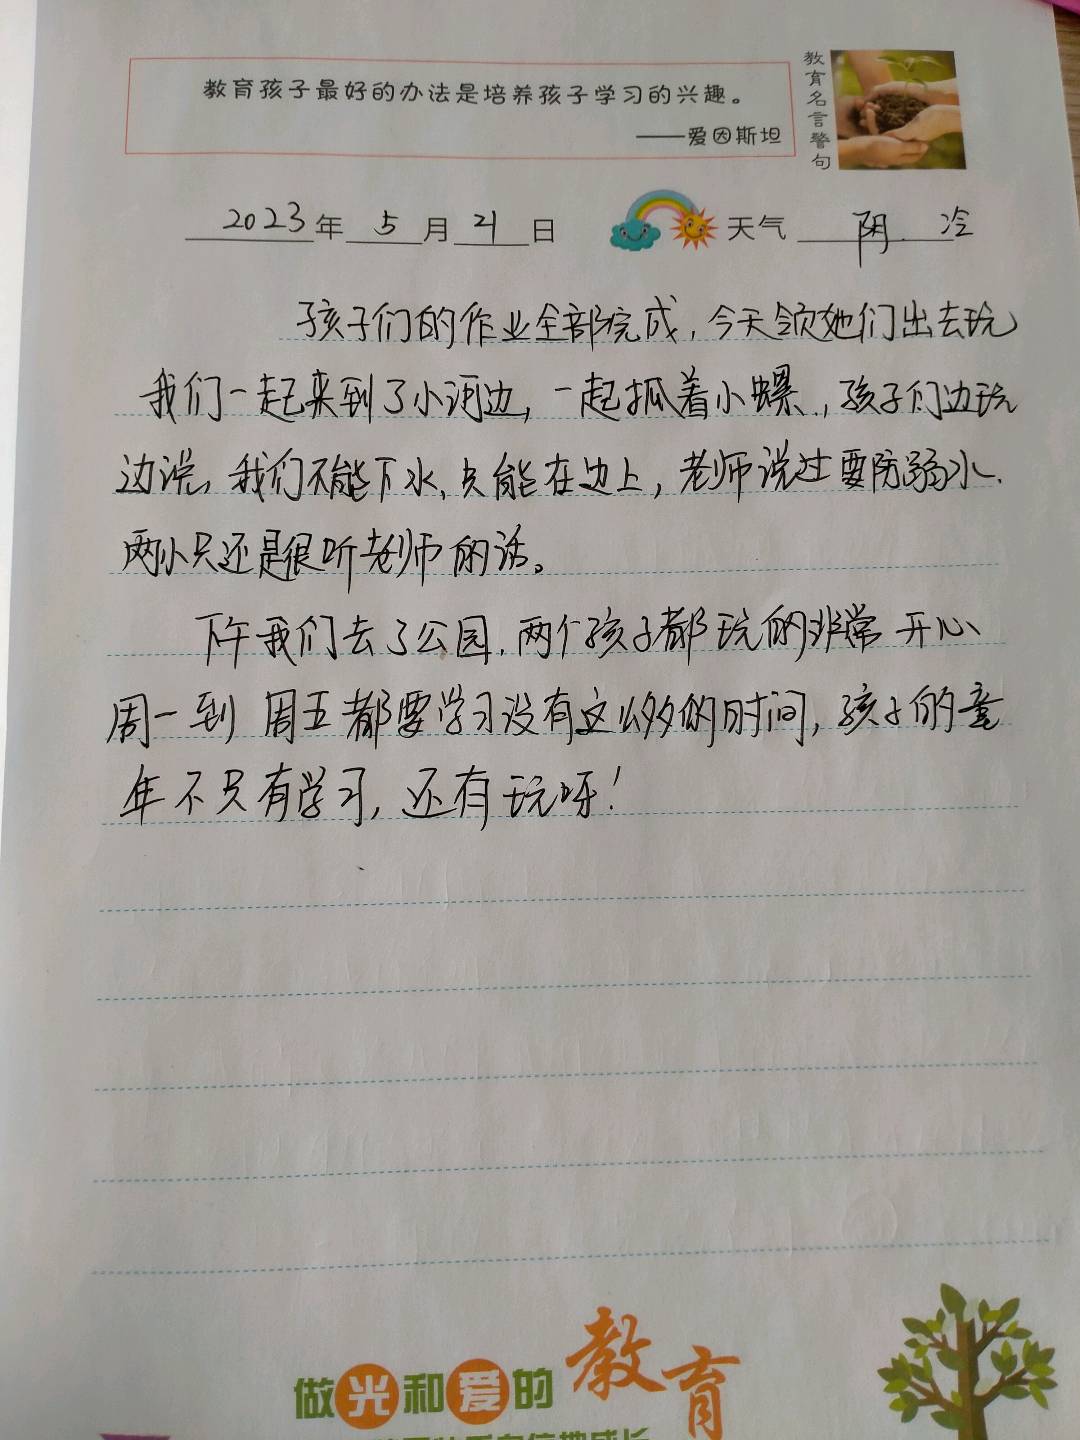 教育孩子最好的办法是培养孩子学习的兴趣。
——爱因斯坦
教育名言警句
2023年 5月 21日 天气 阴 冷
孩子们的作业全部完成,今天领她们出去玩
我们一起来到了小河边,一起抓着小螺,孩子们边玩
边说,我们不能下水,只能在边上,老师说过要防溺水.
两小只还是很听老师的话。
下午我们去了公园.两个孩子都玩的非常开心
周一到周五都要学习没有这么多的时间,孩子的童
年不只有学习,还有玩呀!
做光和爱的教育